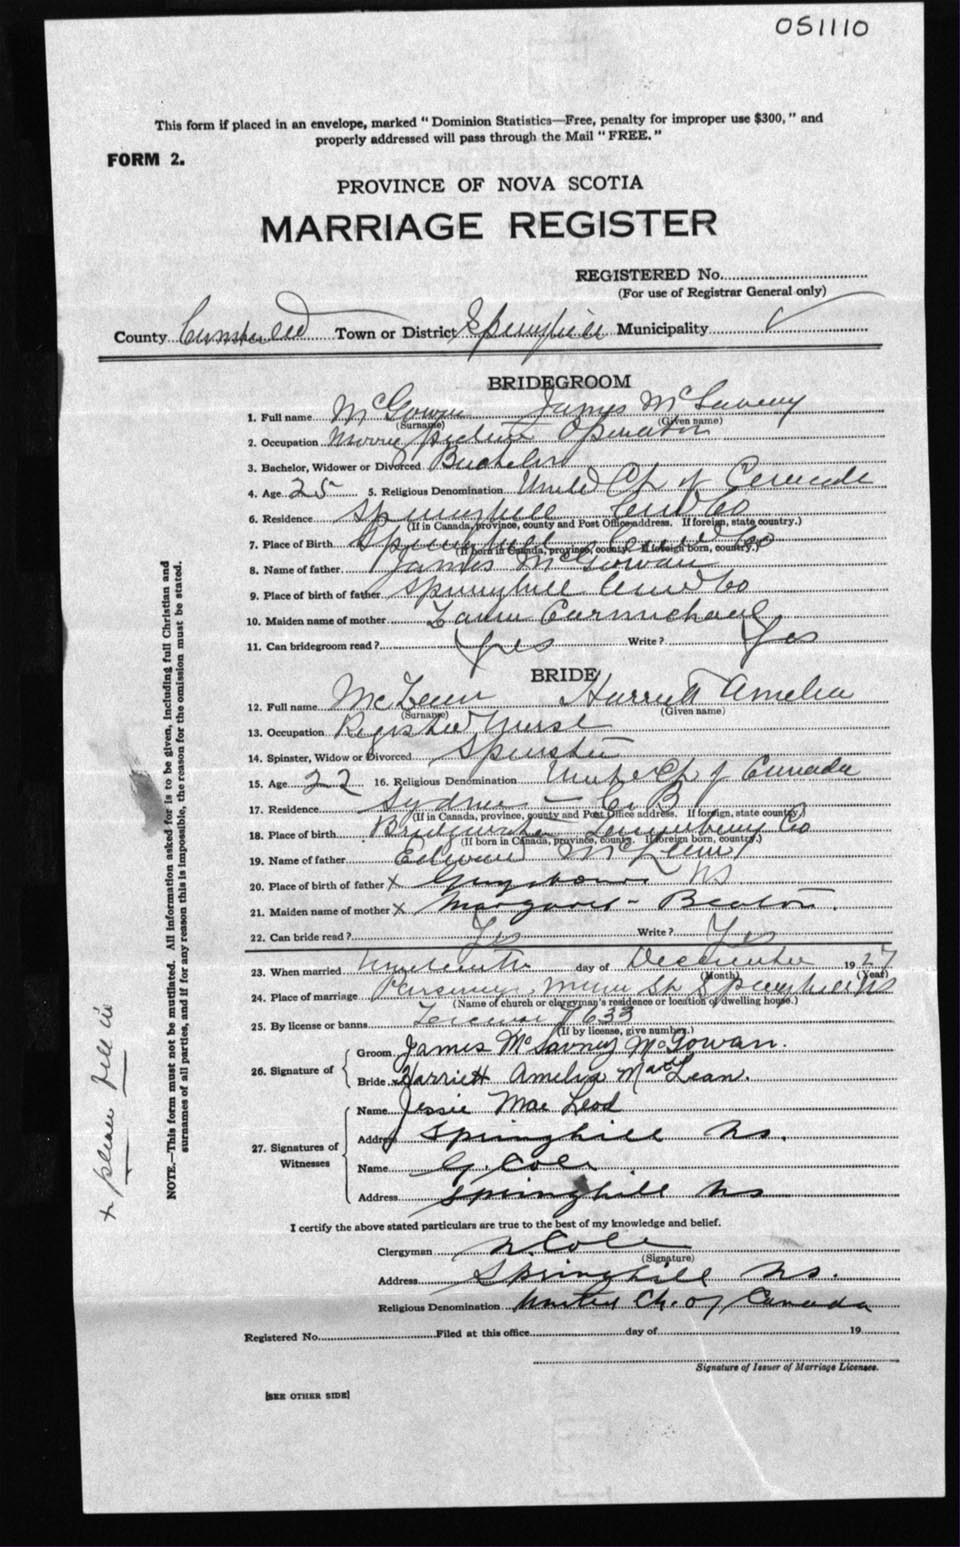 051110
This form if placed in an envelope, marked "Dominion Statistics—Free, penalty for improper use $300," and
properly addressed will pass through the Mail "FREE."
FORM 2.
PROVINCE OF NOVA SCOTIA
MARRIAGE REGISTER
REGISTERED No.
(For use of Registrar General only)
County Cumberland Town or District Springhill Municipality
BRIDEGROOM
1. Full name McGowan James McSavney
(Surname) (Given name)
2. Occupation Moving picture Operator
3. Bachelor, Widower or Divorced Bachelor
4. Age 25 5. Religious Denomination United Ch of Canada
6. Residence Springhill Cumb Co
(If in Canada, province, county and Post Office address. If foreign, state country.)
7. Place of Birth Springhill Cumb Co
(If born in Canada, province, county. If foreign born, country.)
8. Name of father James McGowan
9. Place of birth of father Springhill Cumb Co
10. Maiden name of mother Carmichael
11. Can bridegroom read? Yes Write? Yes
BRIDE
12. Full name McLean Harriett Amelia
(Surname) (Given name)
13. Occupation Register Nurse
14. Spinster, Widow or Divorced Spinster
15. Age 22 16. Religious Denomination United Ch of Canada
17. Residence Sydney — C B
(If in Canada, province, county and Post Office address. If foreign, state country.)
18. Place of birth Bridgewater Lunenburg Co
(If born in Canada, province, county. If foreign born, country.)
19. Name of father Edward McLean
20. Place of birth of father x Guysboro NS
21. Maiden name of mother x Margaret - Beaton.
22. Can bride read? Yes Write? Yes
23. When married day of December 1927
(Month) (Year)
24. Place of marriage Parsonage, Main St Springhill NS
(Name of church or clergyman's residence or location of dwelling house.)
25. By license or banns License # 633
(If by license, give number.)
26. Signature of
Groom James McSavney McGowan.
Bride x Harriett Amelia MacLean.
27. Signatures of Witnesses
Name Jessie MacLeod
Address Springhill Ns.
Name G. Cole
Address Springhill Ns
I certify the above stated particulars are true to the best of my knowledge and belief.
Clergyman Cole
(Signature)
Address Springhill Ns.
Religious Denomination United Ch. of Canada
Registered No. Filed at this office day of 19
Signature of Issuer of Marriage Licenses.
[SEE OTHER SIDE]
NOTE.—This form must not be mutilated. All information asked for is to be given, including full Christian and
surnames of all parties, and if for any reason this is impossible, the reason for the omission must be stated.
x please fill in